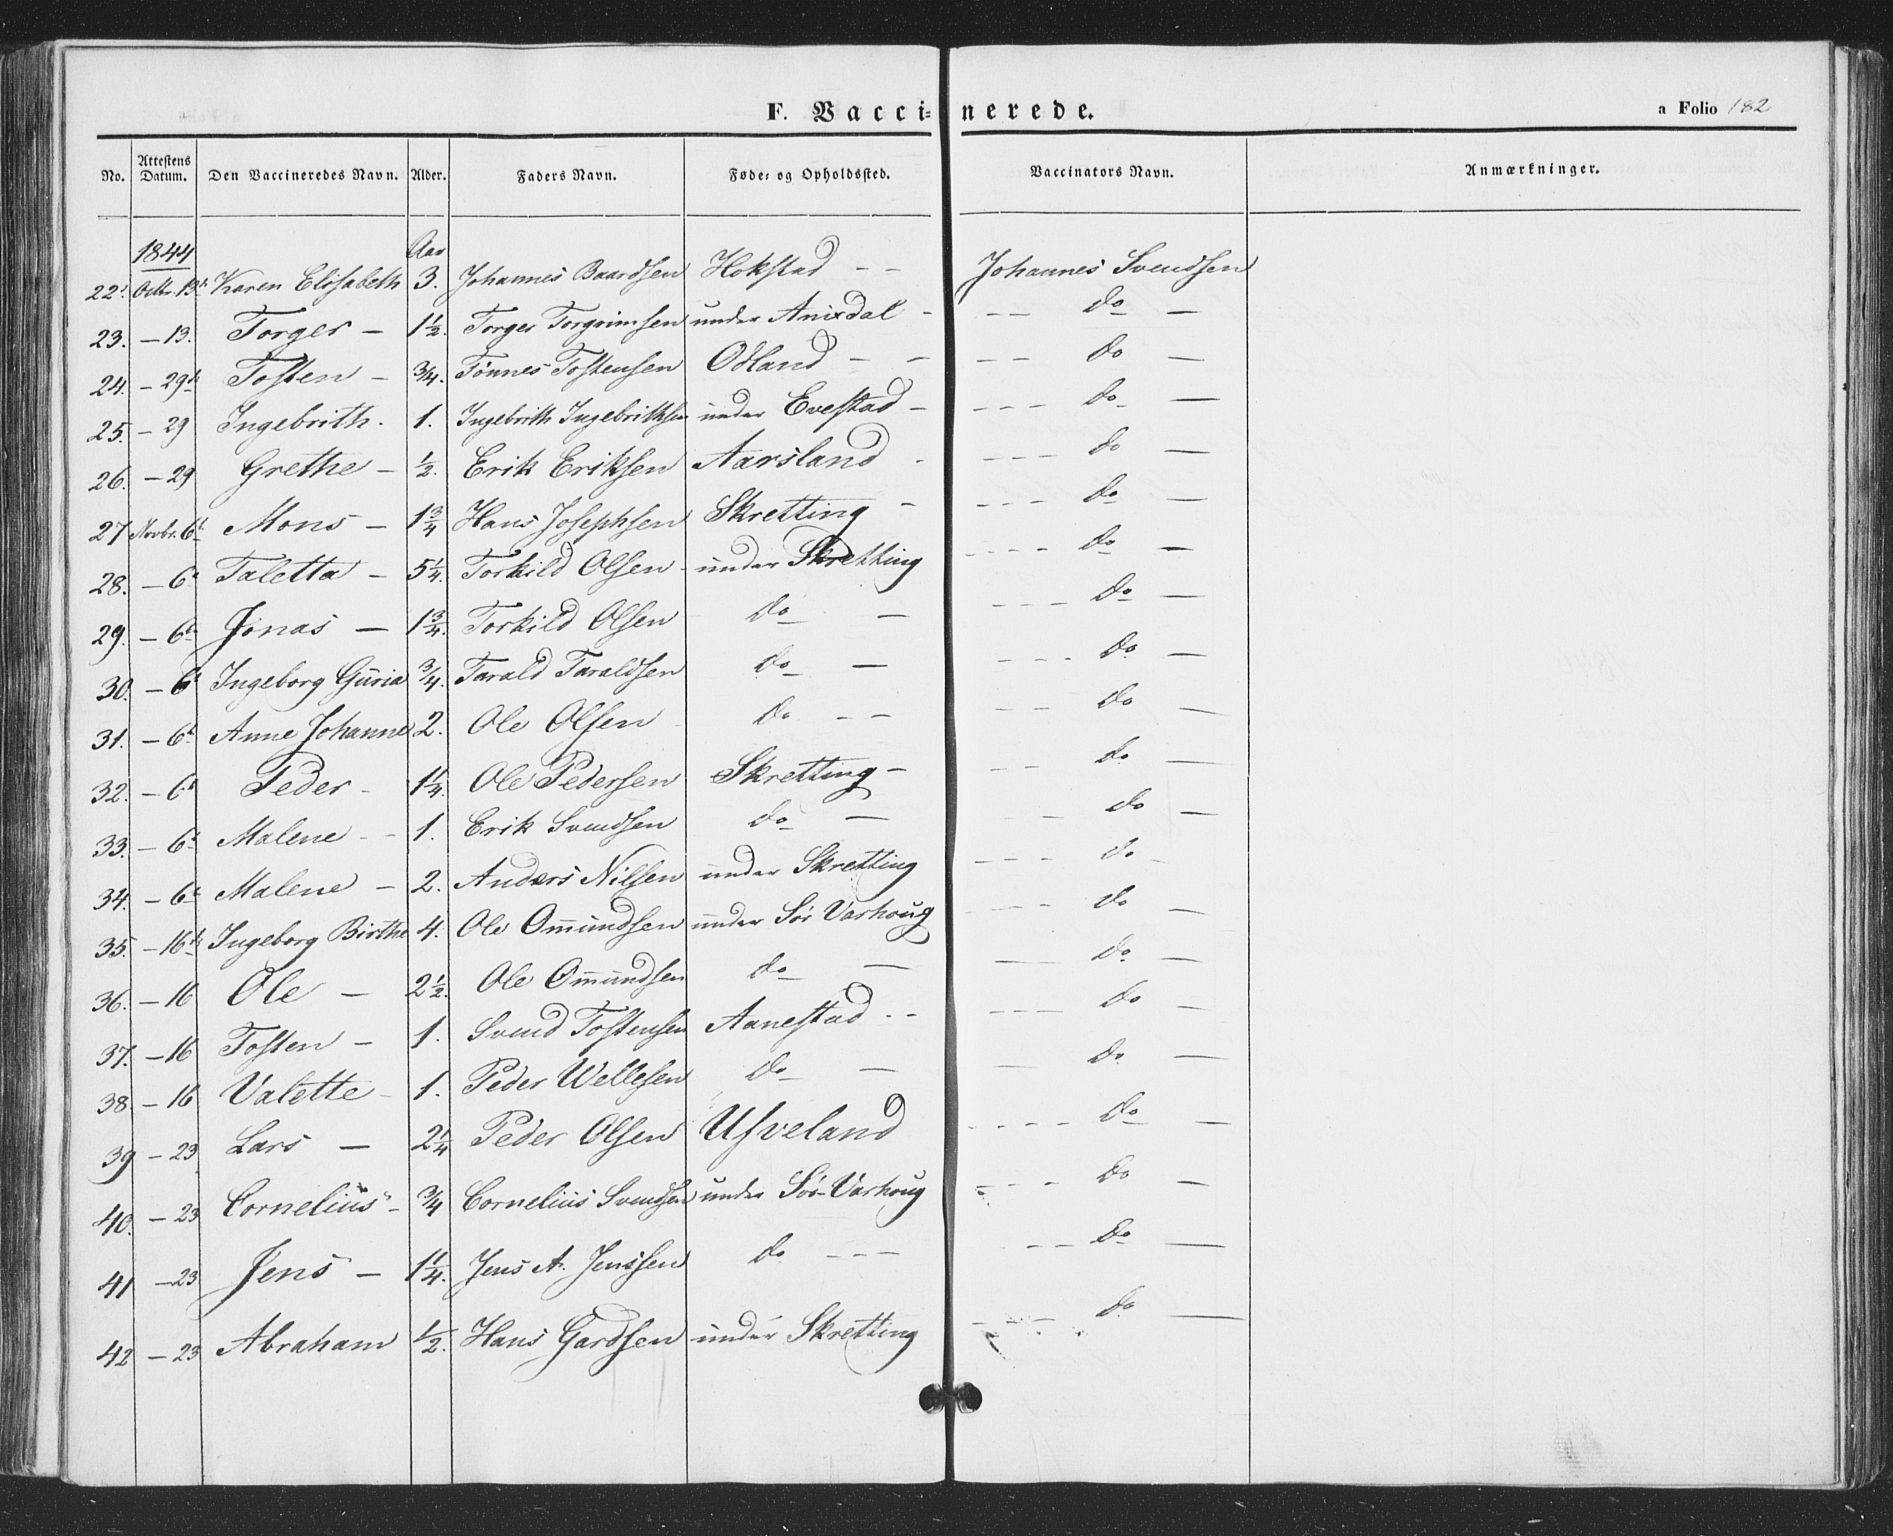 F. Vaccinerede.
a Folio 182
No. Attestens Datum. Den Vaccineredes Navn. Alder. Faders Navn. Føde- og Opholdssted. Vaccinators Navn. Anmærkninger.
1844 Aar
22. Octbr. 13de Karen Elisabeth 3. Johannes Baardsen Hokstad - - Johannes Svendsen
23. - 13. Torger - 1½. Torger Torgrimsen under Anisdal - -- do -
24. - 29de Tosten - ¾. Tønnes Tostensen Odland - - -- do -
25. - 29 Ingebrith. 1. Ingebrith Ingebrithsen under Evestad - --- do -
26. - 29 Grethe - ½. Erik Eriksen Aarsland - --- do -
27 Novbr. 6te Mons - 1¾ Hans Josephsen Skretting - --- do -
28. - 6te Taletta - 5¼. Torkild Olsen - under Skretting ---- do -
29. - 6te Jonas - 1¾. Torkild Olsen do - --- do -
30. - 6te Ingeborg Guria ¾. Tarald Taraldsen do - --- do -
31. - 6te Anne Johanne 2. Ole Olsen do -- -- do -
32. - 6te Peder - 1¼. Ole Pedersen Skretting - -- do -
33. - 6te Malene -- 1. Erik Svendsen do - -- do -
34. - 6te Malene - 2. Anders Nilsen under Skretting --- do -
35. - 16de Ingeborg Birthe 4. Ole Omundsen under Sör Varhoug --- do -
36. - 16 Ole - 2½. Ole Omundsen do - -- do -
37. - 16 Tosten - 1. Svend Tostensen Aanestad -- --- do -
38 - 16 Valette - 1. Peder Wellesen do - - do -
39 - 23 Lars - 2¼ Peder Olsen Usveland ---- do -
40. - 23 Cornelius - ¾ Cornelius Svendsen under Sör-Varhoug ---- do -
41 - 23 Jens - 1¼. Jens A. Jenssen do --- --- do -
42 - 23 Abraham ½. Hans Gardsen under Skretting ---- do -